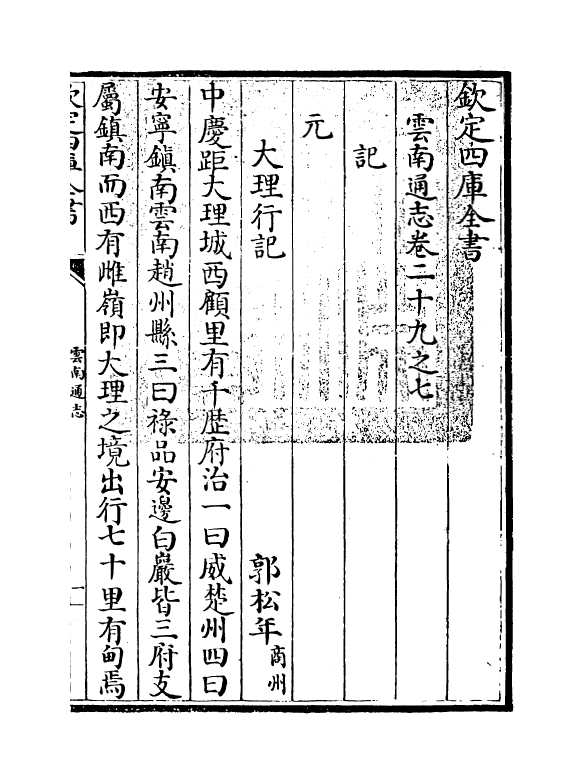 欽定四庫全書
雲南通志卷二十九之七
記
元
大理行記 郭松年商州
中慶距大理城西顧里有千歴府治一曰威楚州四曰
安寧鎮南雲南趙州縣三曰祿品安邊白巖皆三府支
屬鎮南而西有雌嶺即大理之境出行七十里有甸焉
欽定四庫全書
雲南通志
一